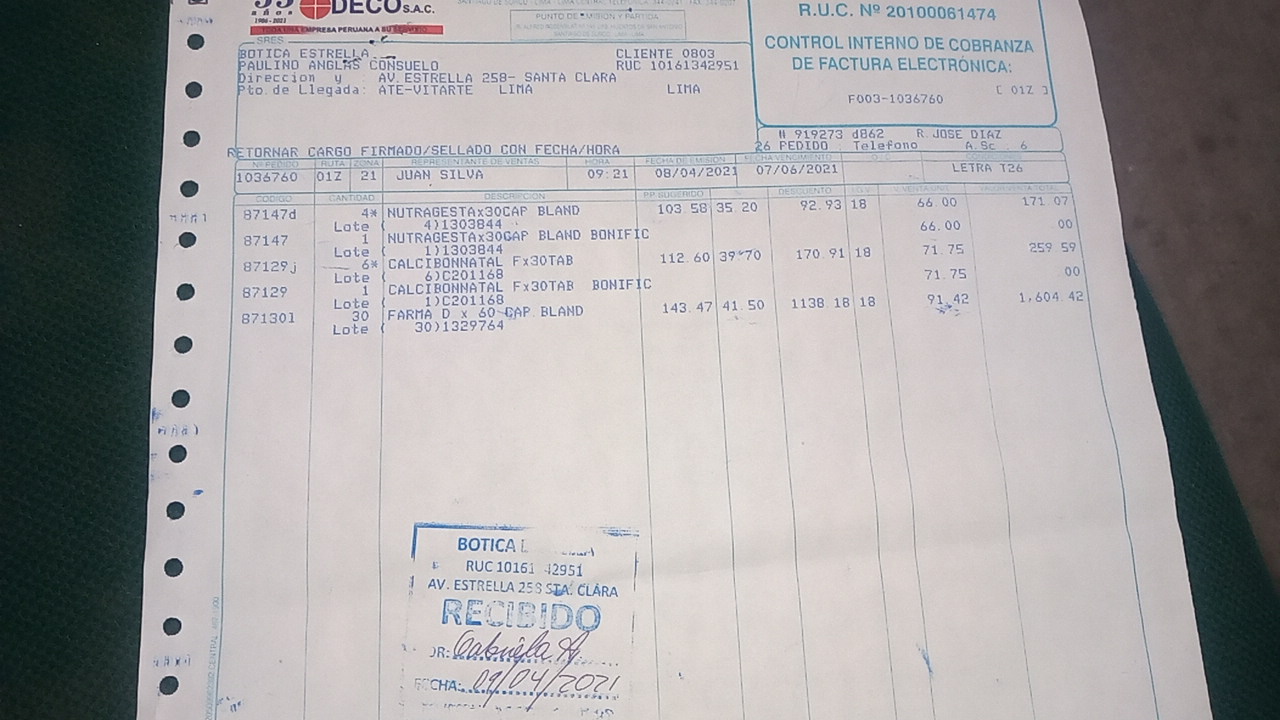 55 DECO S.A.C.
años
1966 - 2021
TODA UNA EMPRESA PERUANA A SU SERVICIO
PUNTO DE EMISIÓN Y PARTIDA
R.U.C. Nº 20100061474
CONTROL INTERNO DE COBRANZA
DE FACTURA ELECTRÓNICA:
F003-1036760 [ 01Z ]
SRES
BOTICA ESTRELLA CLIENTE 0803
PAULINO ANGLAS CONSUELO RUC 10161342951
Direccion y : AV.ESTRELLA 258- SANTA CLARA
Pto.de Llegada: ATE-VITARTE LIMA LIMA
N 919273 d862 R.JOSE DIAZ
RETORNAR CARGO FIRMADO/SELLADO CON FECHA/HORA 26 PEDIDO Telefono A.Sc. 6
Nº PEDIDO RUTA ZONA REPRESENTANTE DE VENTAS HORA FECHA DE EMISIÓN FECHA VENCIMIENTO O.C. CONDICIONES
1036760 01Z 21 JUAN SILVA 09:21 08/04/2021 07/06/2021 LETRA T26
CODIGO CANTIDAD DESCRIPCION P.P. SUGERIDO % DESCUENTO I.G.V. V.VENTA UNIT. VALOR VENTA TOTAL
87147d 4* NUTRAGESTAx30CAP BLAND 103.58 35.20 92.93 18 66.00 171.07
Lote ( 4)1303844
87147 1 NUTRAGESTAx30CAP BLAND BONIFIC 66.00 00
Lote ( 1)1303844
87129j 6* CALCIBONNATAL Fx30TAB 112.60 39.70 170.91 18 71.75 259.59
Lote ( 6)C201168
87129 1 CALCIBONNATAL Fx30TAB BONIFIC 71.75 00
Lote ( 1)C201168
871301 30 FARMA D x 60 CAP.BLAND 143.47 41.50 1138.18 18 91.42 1,604.42
Lote ( 30)1329764
BOTICA
RUC 10161 42951
AV. ESTRELLA 258 STA. CLARA
RECIBIDO
OR: Gabriela A.
FECHA: 09/04/2021